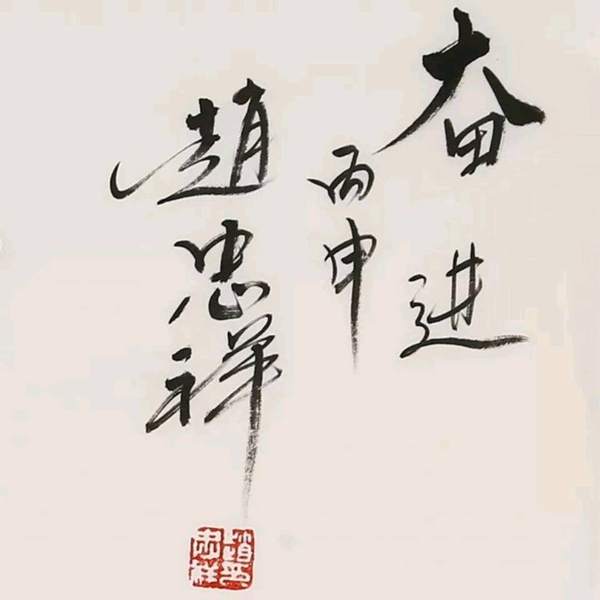 奋进
丙申
趙忠祥
趙忠祥印